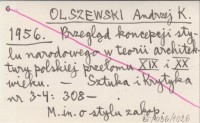 OLSZEWSKI Andrzej K.
1956. Przegląd koncepcji sty-
lu narodowego w teorii architek-
tury polskiej przełomu XIX i XX
wieku. - Sztuka i Krytyka
nr 3-4: 308-
M.in. o stylu zakop.